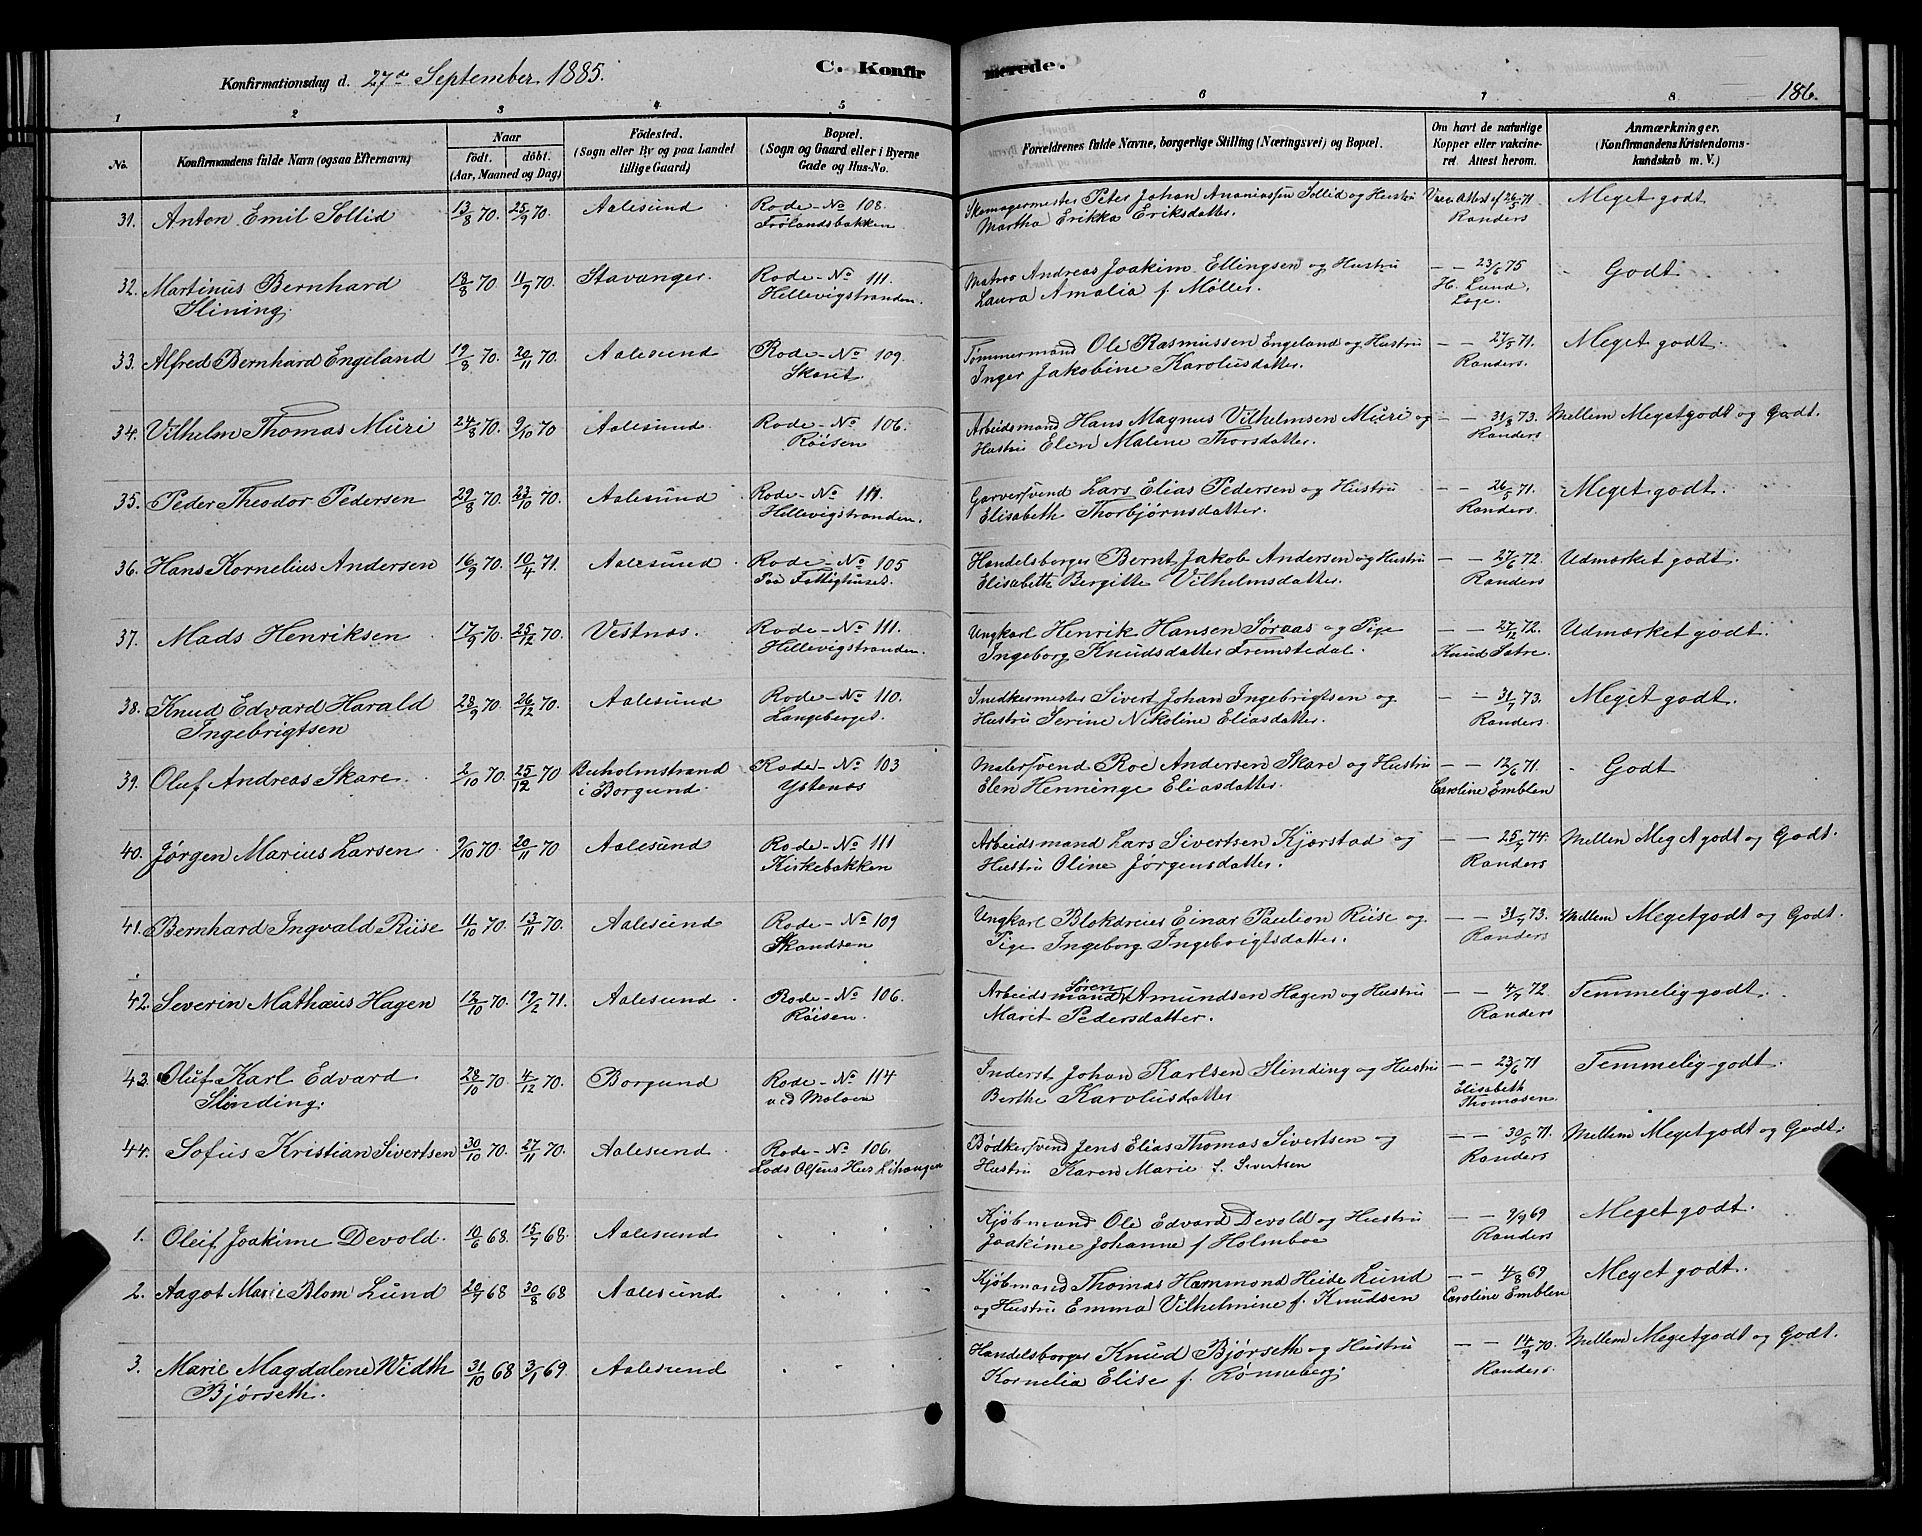 Konfirmationsdag d. 27de September 1885.
C. Konfirmerede.
186.
1 2 3 4 5 6 7 8
No.
Konfirmandens fulde Navn (ogsaa Efternavn)
Naar
født. døbt.
(Aar, Maaned og Dag)
Födested.
(Sogn eller By og paa Landet
tillige Gaard)
Bopæl.
(Sogn og Gaard eller i Byerne
Gade og Hus-No.
Forældrenes fulde Navne, borgerlige Stilling (Næringsvei) og Bopæl.
Om havt de naturlige
Kopper eller vakcine-
ret. Attest herom.
Anmærkninger.
(Konfirmandens Kristendoms-
kundskab m. V.)
31. Anton Emil Sollid 13/8 70. 25/9 70. Aalesund Rode-No 108. Skomagermester Peter Johan Ananiassen Sollid og Hustru Vacc. Attest af 26/5 71 Meget godt
Frølandsbakken Martha Erikka Eriksdatter. Randers
32. Martinus Bernhard 18/8 70 11/9 70. Stavanger. Rode-No 111. Matros Andreas Joakim Ellingsen og Hustru — — 23/6 75 Godt
Slining. Hellevigstranden. Laura Amalia f. Møller. H. Lund,
Læge.
33. Alfred Bernhard Engeland 19/8 70. 20/11 70. Aalesund Rode-No 109. Tømmermand Ole Rasmussen Engeland og Hustru — — 27/5 71. Meget godt.
Skaret. Inger Jakobine Karolusdatter. Randers.
34. Vilhelm Thomas Muri 24/8 70. 9/10 70 Aalesund. Rode-No 106. Arbeidsmand Hans Magnus Vilhelmsen Muri og — — 31/8 73. Mellem Megetgodt og Godt.
Røisen Hustru Elen Malene Thorsdatter. Randers
35. Peder Theodor Pedersen 29/8 70. 23/10 70. Aalesund Rode-No 111. Garversvend Lars Elias Pedersen og Hustru — — 26/5 71. Meget godt.
Hellevigstranden. Elisabeth Thorbjørnsdatter. Randers.
36. Hans Kornelius Andersen 16/9 70. 10/4 71. Aalesund Rode-No 105 Handelsborger Bernt Jakob Andersen og Hustru — — 27/6 72. Udmærket godt.
Paa Fattighuset. Elisabeth Bergitte Vilhelmsdatter. Randers
37. Mads Henriksen 17/9 70. 25/12 70. Vestnæs. Rode-No 111. Ungkarl Henrik Hansen Søraas og Pige — — 27/12 72. Udmærket godt.
Hellevigstranden. Ingeborg Knudsdatter Fremstedal. Knud Satre.
38. Knud Edvard Harald 28/9 70. 26/12 70. Aalesund Rode-No 110. Snedkermester Sivert Johan Ingebrigtsen og — — 31/7 73. Meget godt.
Ingebrigtsen Langberget. Hustru Serine Nikoline Eliasdatter. Randers.
39. Oluf Andreas Skare. 2/10 70. 25/12 70 Buholmstrand Rode-No 103 Malersvend Roe Andersen Skare og Hustru — — 12/6 71. Godt
i Borgund. Ystenæs Elen Henninge Eliasdatter. Caroline Emblem
40. Jørgen Marius Larsen 9/10 70. 20/11 70 Aalesund Rode-No 111 Arbeidsmand Lars Sivertsen Kjærstad og — — 25/7 74. Mellem Meget godt og Godt.
Kirkebakken Hustru Oline Jørgensdatter. Randers
41. Bernhard Ingvald Riise 11/10 70. 13/11 70. Aalesund Rode-No 109 Ungkarl Blokdreier Einar Paulson Riise og — — 31/7 73. Mellem Megetgodt og Godt.
Skandsen Pige Ingeborg Ingebrigtsdatter. Randers
42. Severin Mathæus Hagen 12/10 70. 19/2 71. Aalesund Rode-No 106. Arbeidsmand Søren Amundsen Hagen og Hustru — — 4/7 72. Temmelig godt.
Røisen. Marit Pedersdatter. Randers
43. Oluf Karl Edvard 28/10 70. 4/12 70. Borgund Rode-No 114 Inderst Johan Karlsen Slinding og Hustru — — 23/6 71 Temmelig godt.
Slinding. ved Moloen Berthe Karolusdatter Elisabeth
Thomasen
44. Sofus Kristian Sivertsen 30/10 70. 27/11 70. Aalesund. Rode-No 106. Bødkersvend Jens Elias Thomas Sivertsen og — — 30/5 71. Mellem Megetgodt og Godt.
Lods Olsens Hus Lihaugen Hustru Karen Marie f. Sivertsen Randers
1. Oleif Joakime Devold. 10/6 68. 15/7 68. Aalesund Kjøbmand Ole Edvard Devold og Hustru — — 9/9 69 Meget godt.
Joakime Johanne f Holmboe Randers
2. Aagot Marie Blom Lund 20/7 68 30/8 68 Aalesund Kjøbmand Thomas Hammond Heide Lund — — 4/8 69 Meget godt.
og Hustru Emma Vilhelmine f. Knudsen Caroline Emblem
3. Marie Magdalene Width 31/10 68 3/1 69 Aalesund Handelsborger Knud Bjørseth og Hustru — — 14/9 70. Mellem Megetgodt og Godt.
Bjørseth. Kornelia Elise f. Rønneberg Randers.